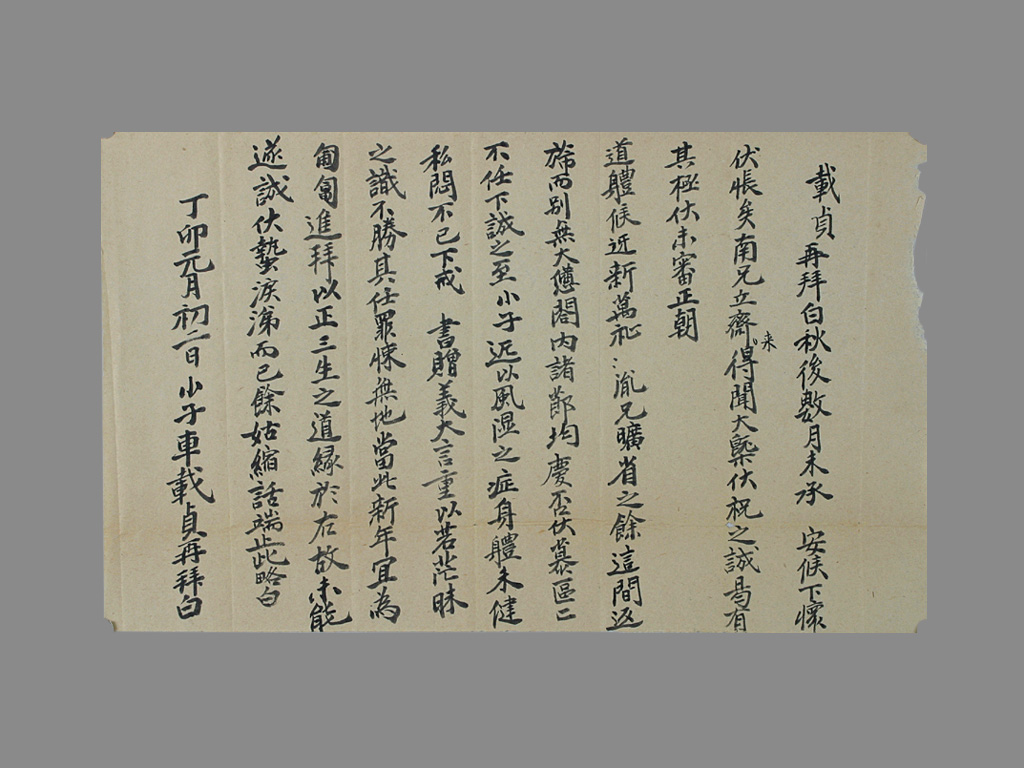 載貞再拜白秋後數月未承 安候下懷
伏悵矣南兄立齋來得聞大槩伏祝之誠曷有
其極伏未審正朝
道體候近新萬祉胤兄曠省之餘這間返
旆而別無大憊閤內諸節均慶否伏慕區區
不任下誠之至小子近以風濕之症身體未健
私悶不已下戒 書贈義大言重以若茫昧
之識不勝其任罪悚無地當此新年宜爲
匍匐進拜以正三生之道緣於右故未能
遂誠伏蟄淚涕而已餘姑縮話端止此略白
丁卯元月初二日小子車載貞再拜白